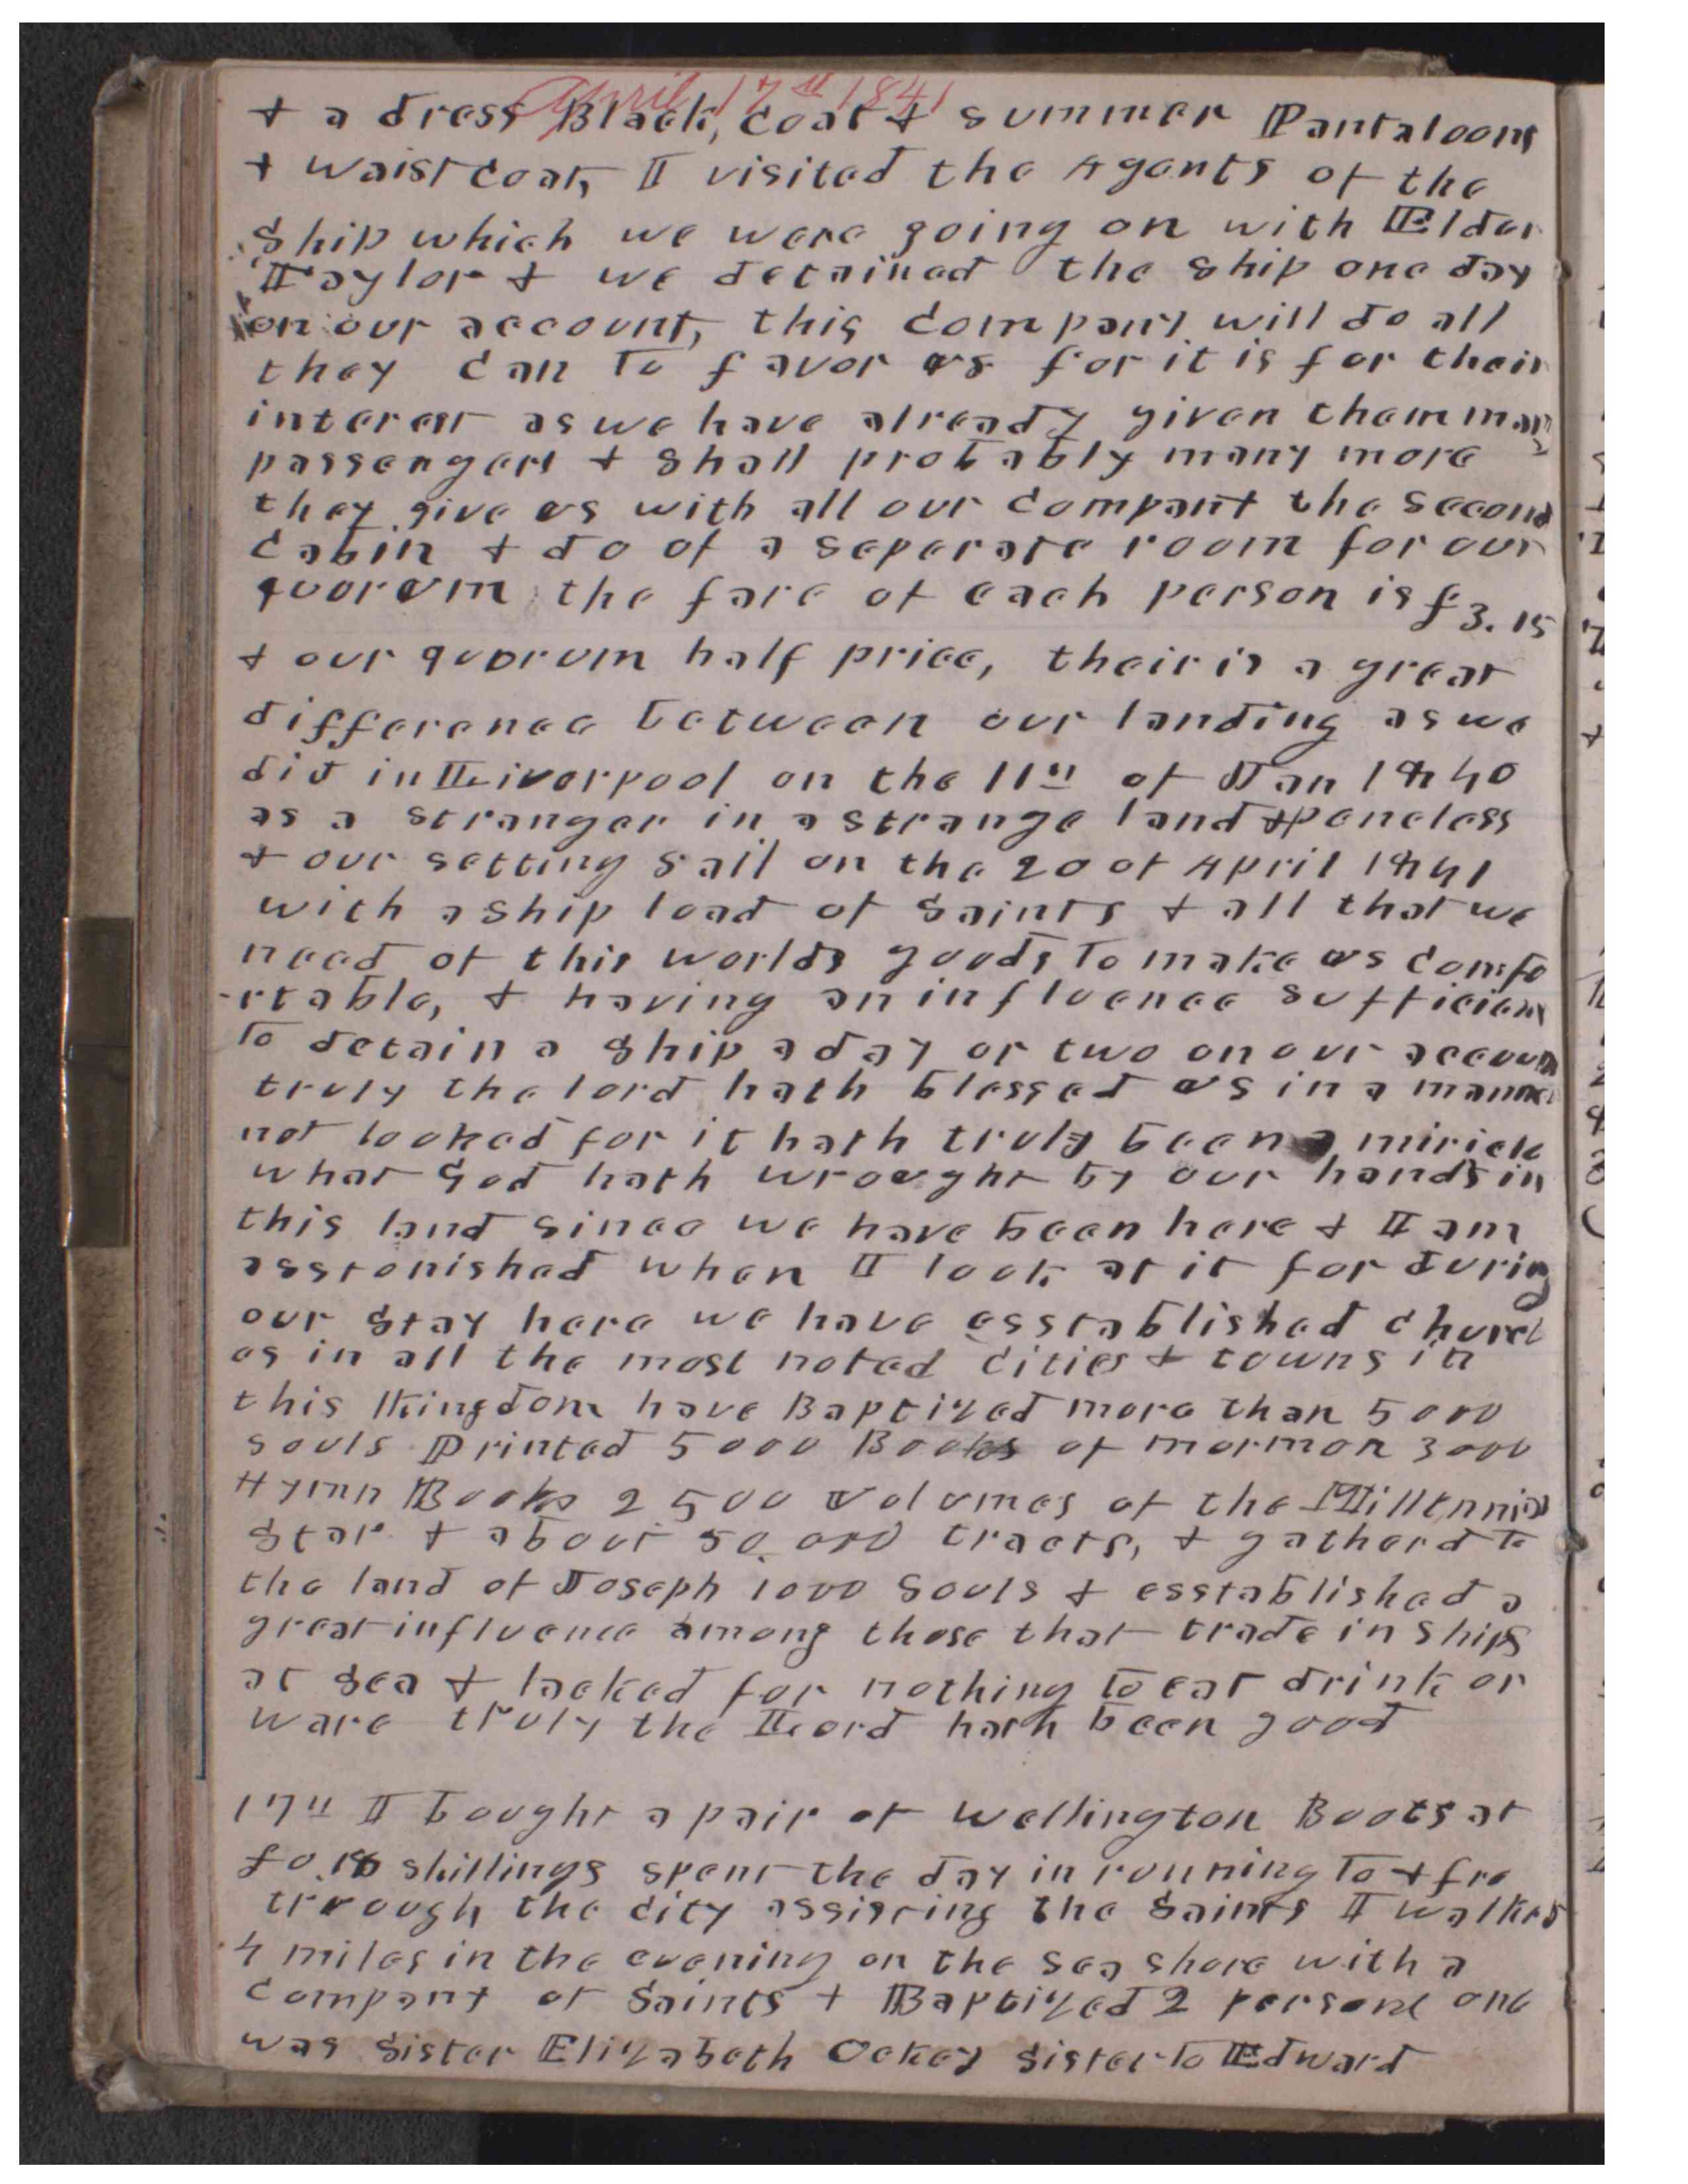 April 17th 1841
& a dress Black, coat & summer Pantaloons
& waistcoat, I visited the Agents of the
Ship which we were going on with Elder
Taylor & we detained the ship one day
on our account, this company will do all
they can to favor us for it is for their
interest as we have already given them many
passengers & shall probably many more
they give us with all our company the second
cabin & do of a seperate room for our
quorum the fare of each person is £3.15
& our quorum half price, their is a great
difference between our landing as we
did in Liverpool on the 11th of Jan 1840
as a stranger in a strange land & peneless
& our setting sail on the 20 of April 1841
with a ship load of Saints & all that we
need of this worlds goods to make us comfo
-rtable, & having an influence sufficient
to detain a ship a day or two on our account
truly the lord hath blessed us in a manner
not looked for it hath truly been a miricle
what God hath wrought by our hands in
this land since we have been here & I am
asstonished when I look at it for during
our stay here we have esstablished church
es in all the most noted cities & towns in
this Kingdom have Baptized more than 5000
souls Printed 5000 Books of mormon 3000
Hymn Books 2500 volumes of the Millennial
Star & about 50.000 tracts, & gatherd to
the land of Joseph 1000 souls & esstablished a
great influence among those that trade in ships
at sea & lacked for nothing to eat drink or
ware truly the Lord hath been good
17th I bought a pair of wellington Boots at
£0.18 shillings spent the day in running to & fro
through the city assisting the Saints I walked
4 miles in the evening on the sea shore with a
company of Saints & Baptized 2 persons one
was sister Elizabeth Ockey sister to Edward